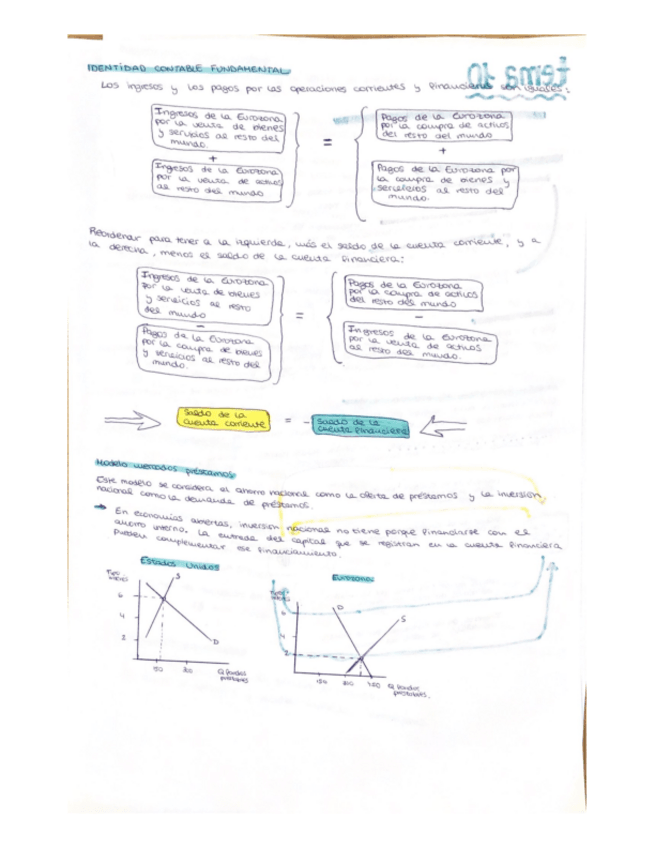 IDENTIDAD CONTABLE FUNDAMENTAL
tema 10
Los ingresos y los pagos por las operaciones corrientes y financieras son iguales:
Ingresos de la Eurozona
por la venta de bienes
y servicios al resto del
mundo.
+
Ingresos de la Eurozona
por la venta de activos
al resto del mundo
=
Pagos de la Eurozona
por la compra de activos
del resto del mundo
+
Pagos de la Eurozona por
la compra de bienes y
servicios al resto del
mundo.
Reordenar para tener a la izquierda, más el saldo de la cuenta corriente, y a
la derecha, menos el saldo de la cuenta financiera:
Ingresos de la Eurozona
por la venta de bienes
y servicios al resto
del mundo
-
Pagos de la Eurozona
por la compra de bienes
y servicios al resto del
mundo.
=
Pagos de la Eurozona
por la compra de activos
del resto del mundo
-
Ingresos de la Eurozona
por la venta de activos
al resto del mundo.
Saldo de la
cuenta corriente
= -
Saldo de la
cuenta financiera
Modelo mercados préstamos
Este modelo se considera el ahorro nacional como la oferta de préstamos y la inversión
nacional como la demanda de préstamos.
→ En economías abiertas, inversión nacional no tiene porque financiarse con el
ahorro interno. La entrada del capital que se registran en la cuenta financiera
pueden complementar ese financiamiento.
Estados Unidos
Tipo
interés
6
4
2
S
D
50
Q fondos
prestables
Eurozona
Tipo
interés
6
4
2
D
S
Q fondos
prestables.